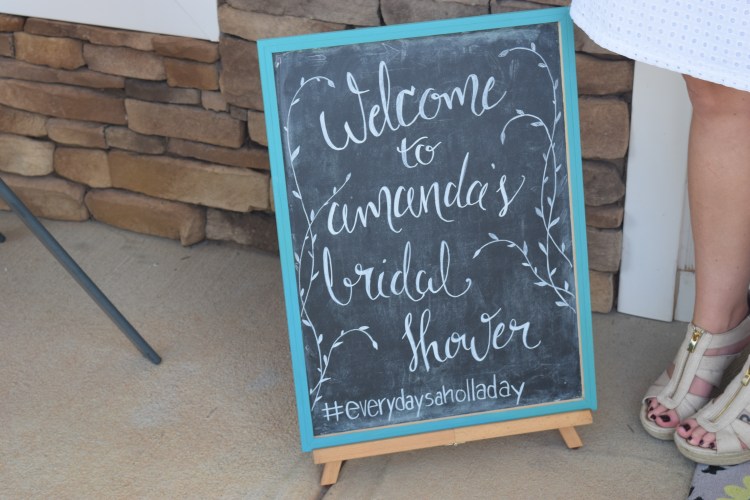 Welcome
to
amanda's
bridal
shower
#everydaysaholladay